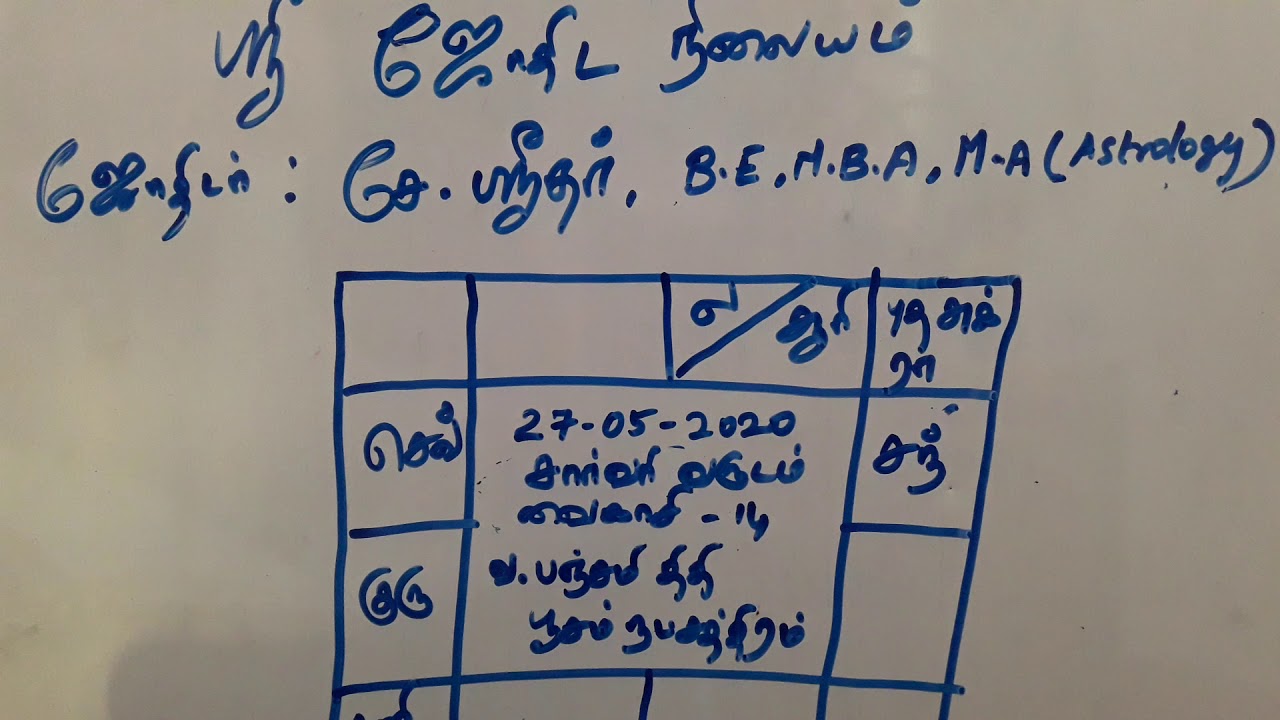 ஸ்ரீ ஜோதிட நிலையம்
ஜோதிடர் : சே. ஸ்ரீதர், B.E, M.B.A, M.A (Astrology)
சூரி
புத சுக்
ரா
செவ்
27-05-2020
சந்
சார்வரி வருடம்
வைகாசி - 14
குரு
வ. பஞ்சமி திதி
பூசம் நட்சத்திரம்